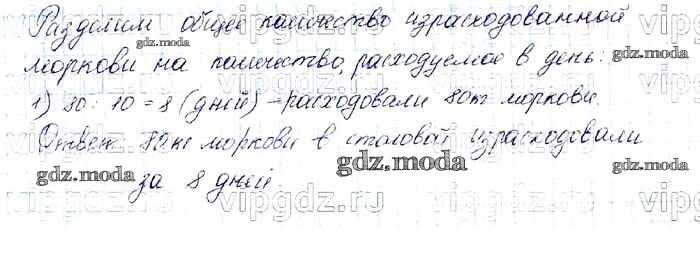 Разделим общее количество израсходованной
моркови на количество, расходуемое в день:
1) 80 : 10 = 8 (дней) – расходовали 80кг моркови.
Ответ: 80кг моркови в столовой израсходовали
за 8 дней
gdz.moda
gdz.moda
gdz.moda
gdz.moda
gdz.moda
gdz.moda
gdz.moda
vipgdz.ru
vipgdz.ru
vipgdz.ru